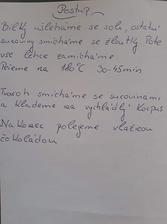 Postup
Bílky ušleháme se solí, ostatní
suroviny smícháme se žloutky. Poté
vše lehce zamícháme
Pečeme na 180°C 30-45min
Tvaroh smícháme se surovinami
a klademe na vychladlý korpus
Na konec polejeme vlažnou
čokoládou